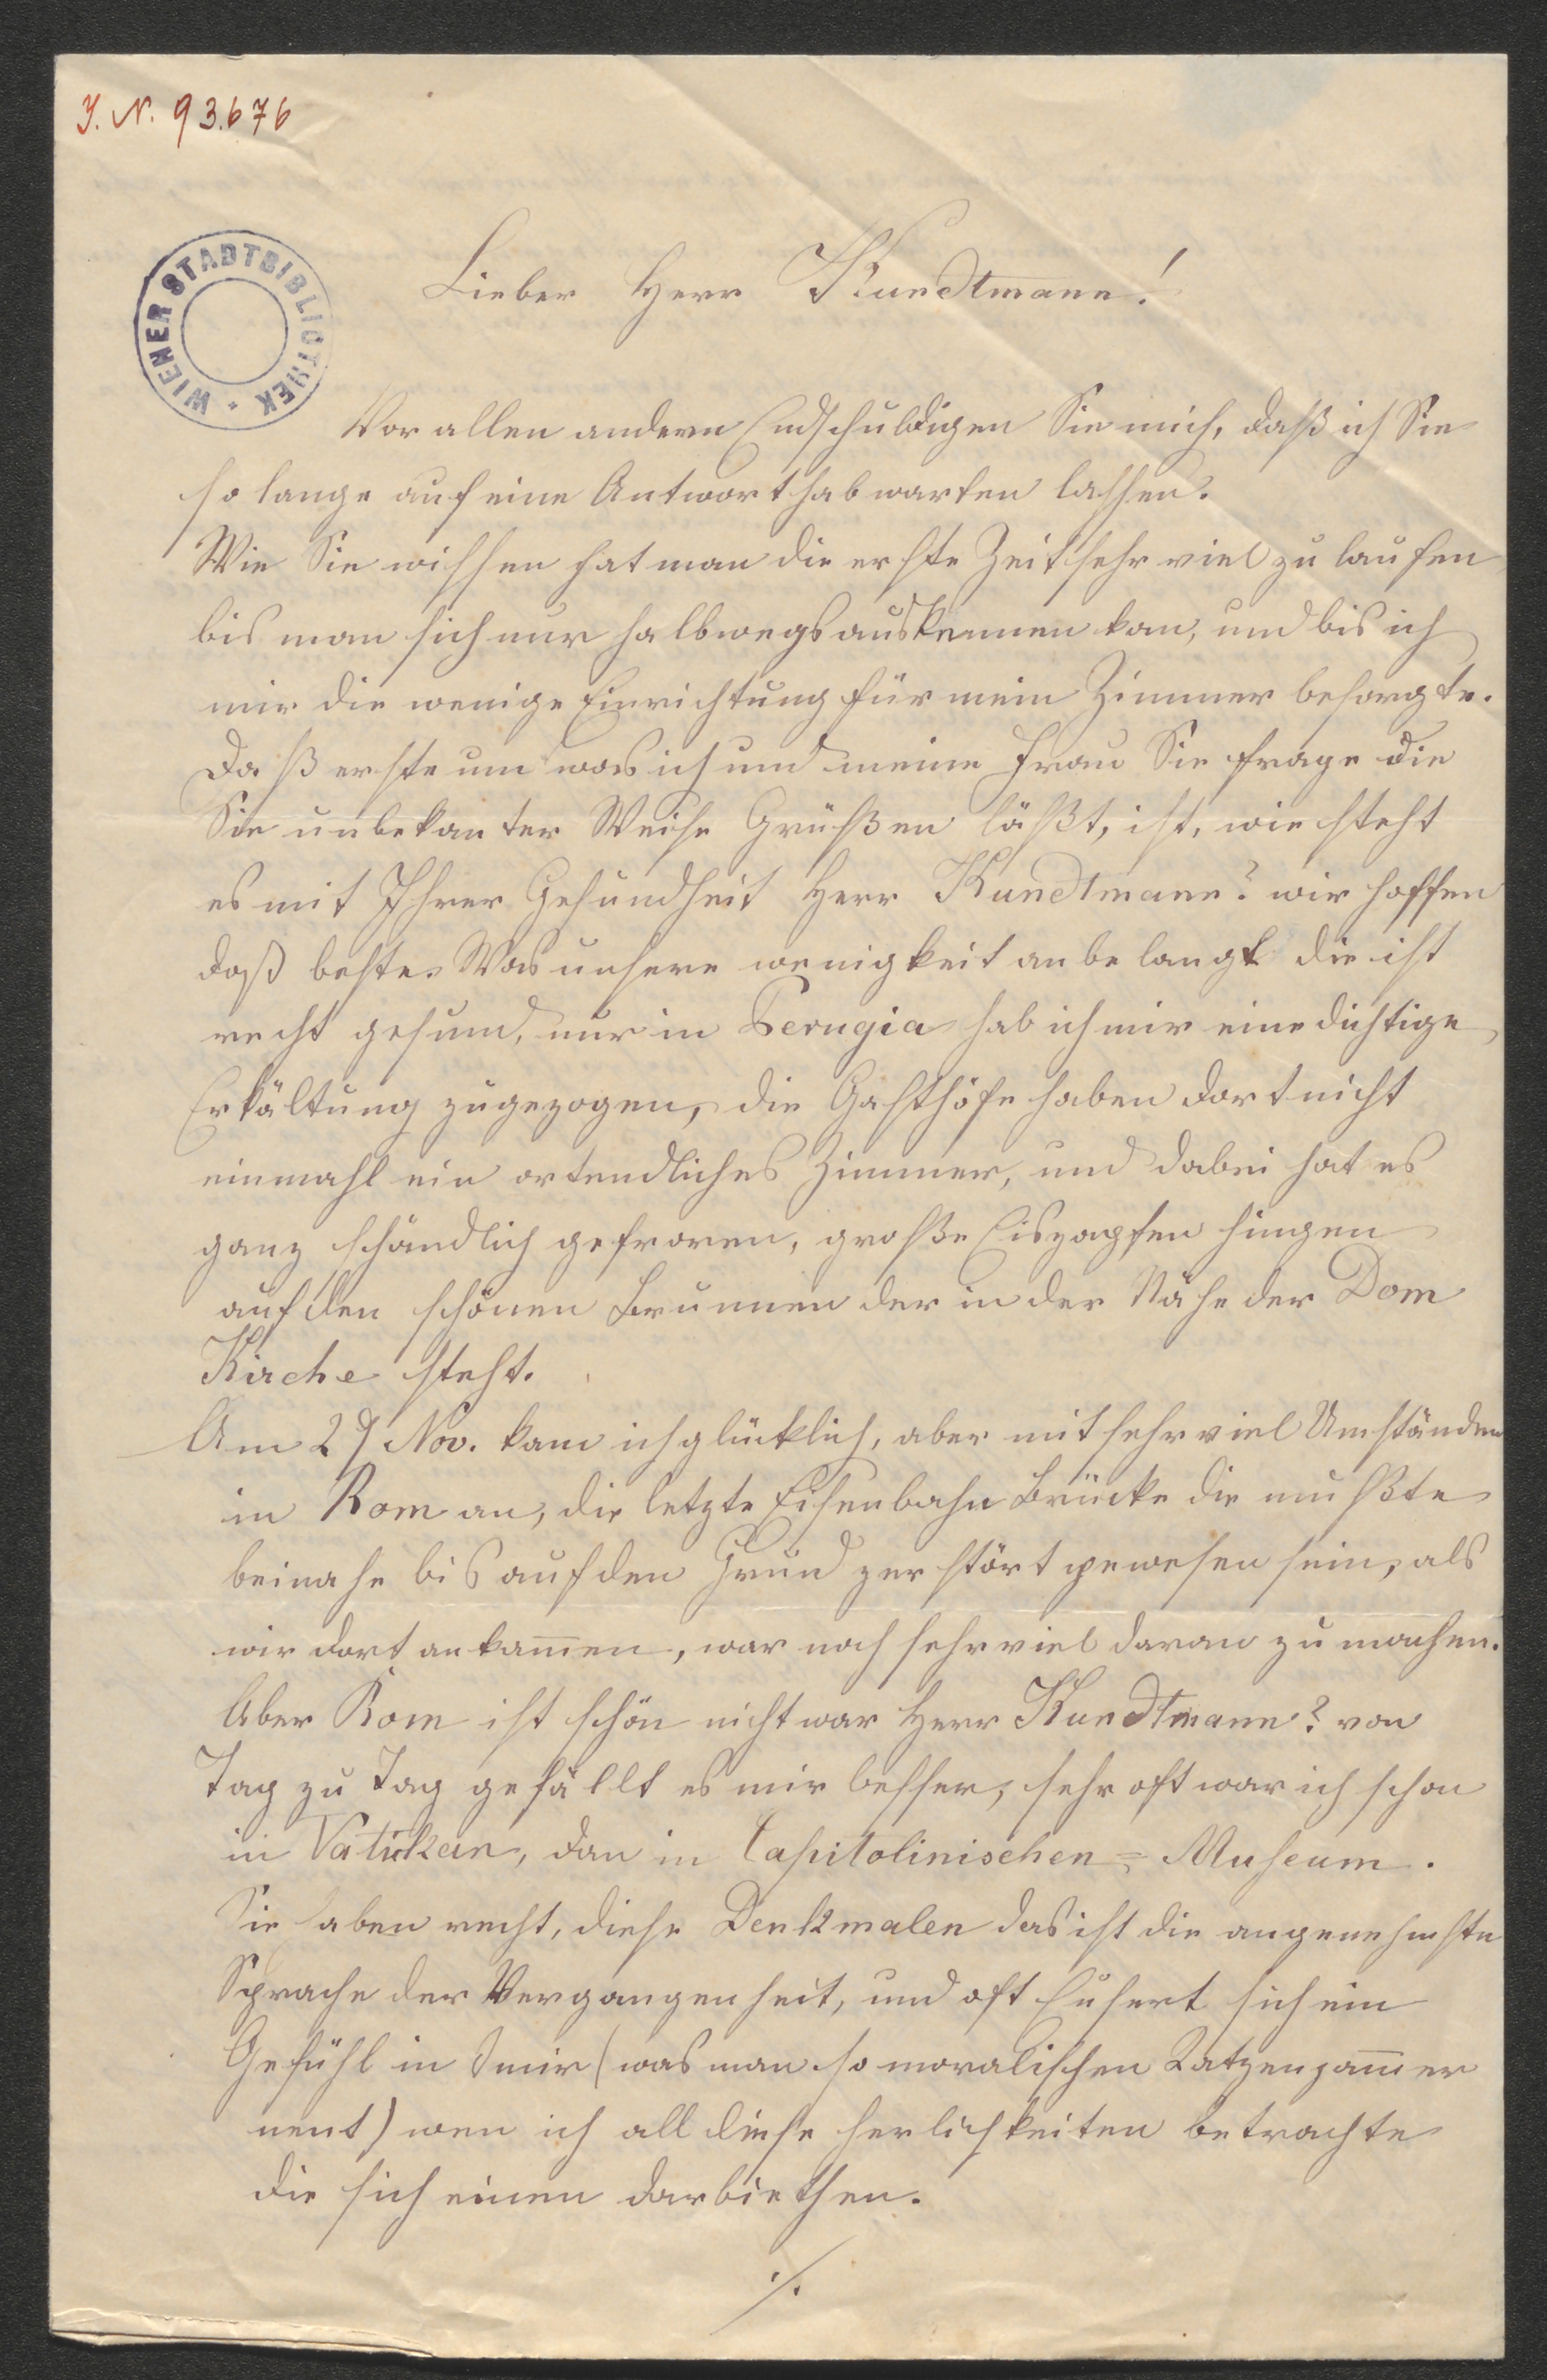 J. N. 93.676
WIENER STADTBIBLIOTHEK
Lieber Herr Kundtmann!
Vor allen andern Endschuldigen Sie mich, daß ich Sie
so lange auf eine Antwort hab warten lassen.
Wie Sie wissen hat man die erste Zeit sehr viel zu laufen
bis man sich nur halbwegs auskennen kan, und bis ich
mir die wenige Einrichtung für mein Zimmer besorgte.
Daß erste um was ich und meine Frau Sie frage die
Sie unbekanter Weise Grüßen läßt, ist, wie steht
es mit Ihrer Gesundheit Herr Kundtmann? wir hoffen
daß beste. Was unsere wenigkeit anbelangt die ist
recht gesund, nur in Perugia hab ich mir eine dichtige
Erkältung zugezogen, die Gasthöfe haben dort nicht
einmahl ein ortendliches Zimmer, und dabei hat es
ganz schändlich gefroren, große Eiszapfen hingen
auf den schönen Brunnen der in der Nähe der Dom
Kirche steht.
Am 29 Nov. kam ich glücklich, aber mit sehr viel Umständen
in Rom an, die letzte Eisenbahn Brücke die mußte
beinahe bis auf den Grund zerstört gewesen sein, als
wir dort ankamen, war noch sehr viel daran zu machen.
Aber Rom ist schön nicht war Herr Kundtmann? von
Tag zu Tag gefällt es mir besser, sehr oft war ich schon
in Vatickan, dan in Capitolinischen=Museum.
Sie haben recht, diese Denkmalen das ist die angenehmste
Sprache der Vergangenheit, und oft Eusert sich ein
Gefühl in mir (was man so moralischen Katzenjamer
nent) wen ich all diese herlichkeiten betrachte
die sich einen darbiethen.
./.